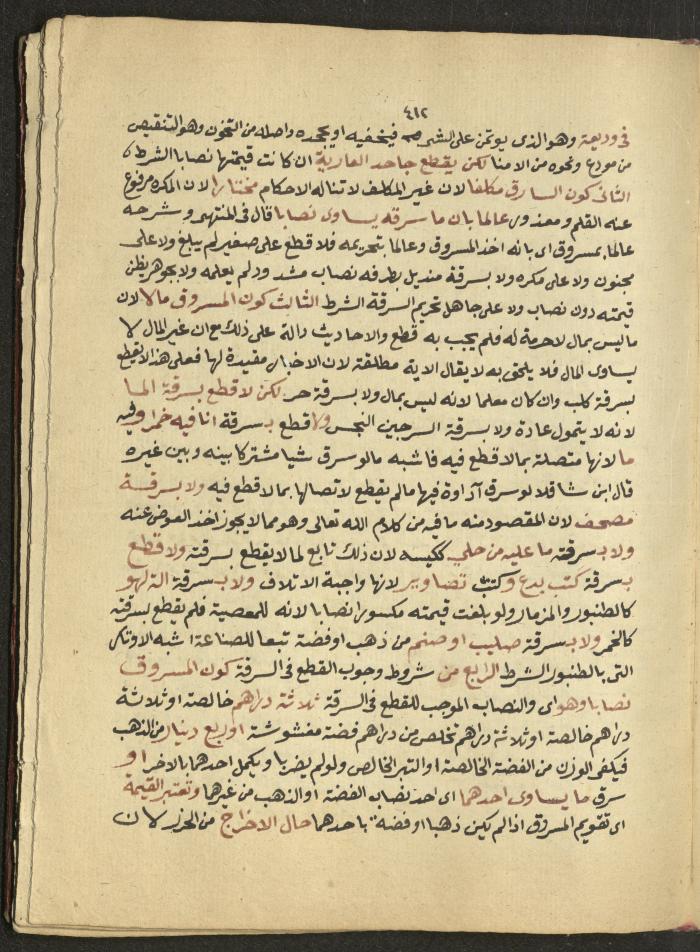 ٤١٢
في وديعة وهو الذى يوتمن على الشىء فيخفيه او يجحده واصله من التخون وهو التنقيص
من مودع ونحوه من الامنا لكن يقطع جاحد العارية ان كانت قيمتها نصابا الشرط
الثانى كون السارق مكلفا لان غير المكلف لا تناله الاحكام مختارا لان المكره مرفوع
عنه القلم ومعذور عالما بان ما سرقه يساوى نصابا قال فى المنتهى وشرحه
عالما بمسروق اى بانه اخذ المسروق وعالما بتحريمه فلا قطع على صغير لم يبلغ ولا على
مجنون ولا على مكره ولا بسرقة منديل بطرفه نصاب مشدود لم يعلمه ولا بجوهر يظن
قيمته دون نصاب ولا على جاهل تحريم السرقة الشرط الثالث كون المسروق مالا لان
ما ليس بمال لا حرمة له فلم يجب به قطع والاحاديث دالة على ذلك مع ان غير المال لا
يساوى المال فلا يلحق به لا يقال الاية مطلقة لان الاخبار مقيدة لها فعلى هذا لا يقطع
بسرقة كلب وان كان معلما لانه ليس بمال ولا بسرقة حر لكن لا قطع بسرقة الما
لانه لا يتمول عادة ولا بسرقة السرجين النجس ولا قطع بسرقة انا فيه خمر او فيه
ما لانها متصلة بما لا قطع فيه فاشبه ما لو سرق شيا مشتركا بينه وبين غيره
قال ابن شاقلا لو سرق اداوة فيها ما لم يقطع لاتصالها بما لا قطع فيه ولا بسرقة
مصحف لان المقصود منه ما فيه من كلام الله تعالى وهو مما لا يجوز اخذ العوض عنه
ولا بسرقته ما عليه من حلي ككيسه لان ذلك تابع لما لا يقطع بسرقته ولا قطع
بسرقة كتب بدع وكتب تصاوير لانها واجبة الاتلاف ولا بسرقة الة لهو
كالطنبور والمزمار ولو بلغت قيمته مكسورا نصابا لانه للمعصية فلم يقطع بسرقته
كالخمر ولا بسرقة صليب او صنم من ذهب او فضة تبعا للصناعة اشبه الاوتار
التى بالطنبور الشرط الرابع من شروط وجوب القطع فى السرقة كون المسروق
نصابا وهو اى والنصاب الموجب للقطع فى السرقة ثلاثة دراهم خالصة او ثلاثة
دراهم خالصة او ثلاثة دراهم تخلص من دراهم فضة مغشوشة او ربع دينار من الذهب
فيكفى الوزن من الفضة الخالصة او التبر الخالص ولو لم يضربا ويكمل احدهما بالاخر او
سرق ما يساوى احدهما اى احد نصاب الفضة او الذهب من غيرهما وتعتبر القيمة
اى تقويم المسروق اذا لم يكن ذهبا او فضة باحدهما حال الاخراج من الحرز لان